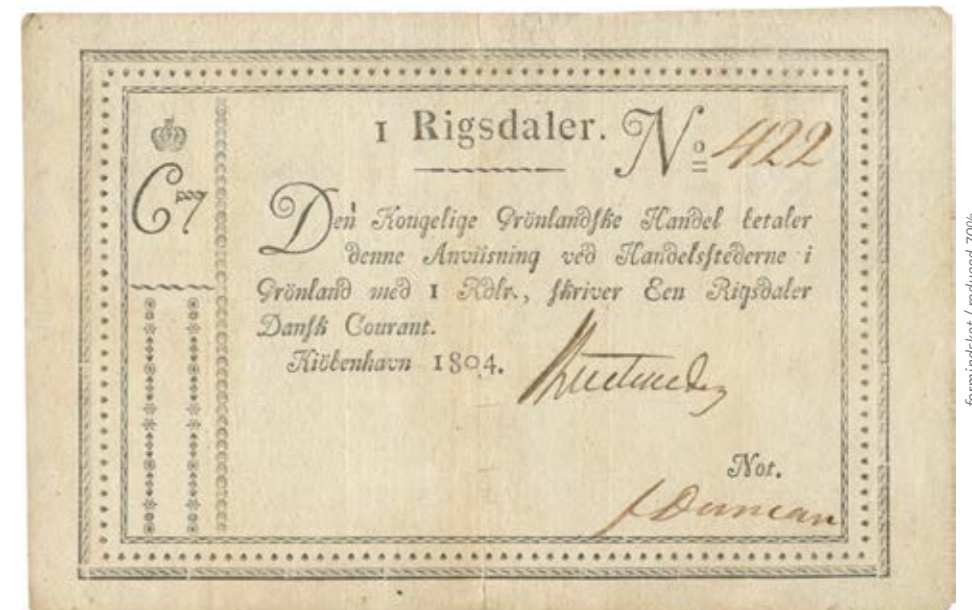 1 Rigsdaler. No 422
C7
Den Kongelige Grönlandſke Handel betaler
denne Anviisning ved Handelsſtederne i
Grönland med 1 Rdlr., ſkriver Een Rigsdaler
Danſk Courant.
Kiöbenhavn 1804.
Not.
J Duncan
formindsket / reduced 70%